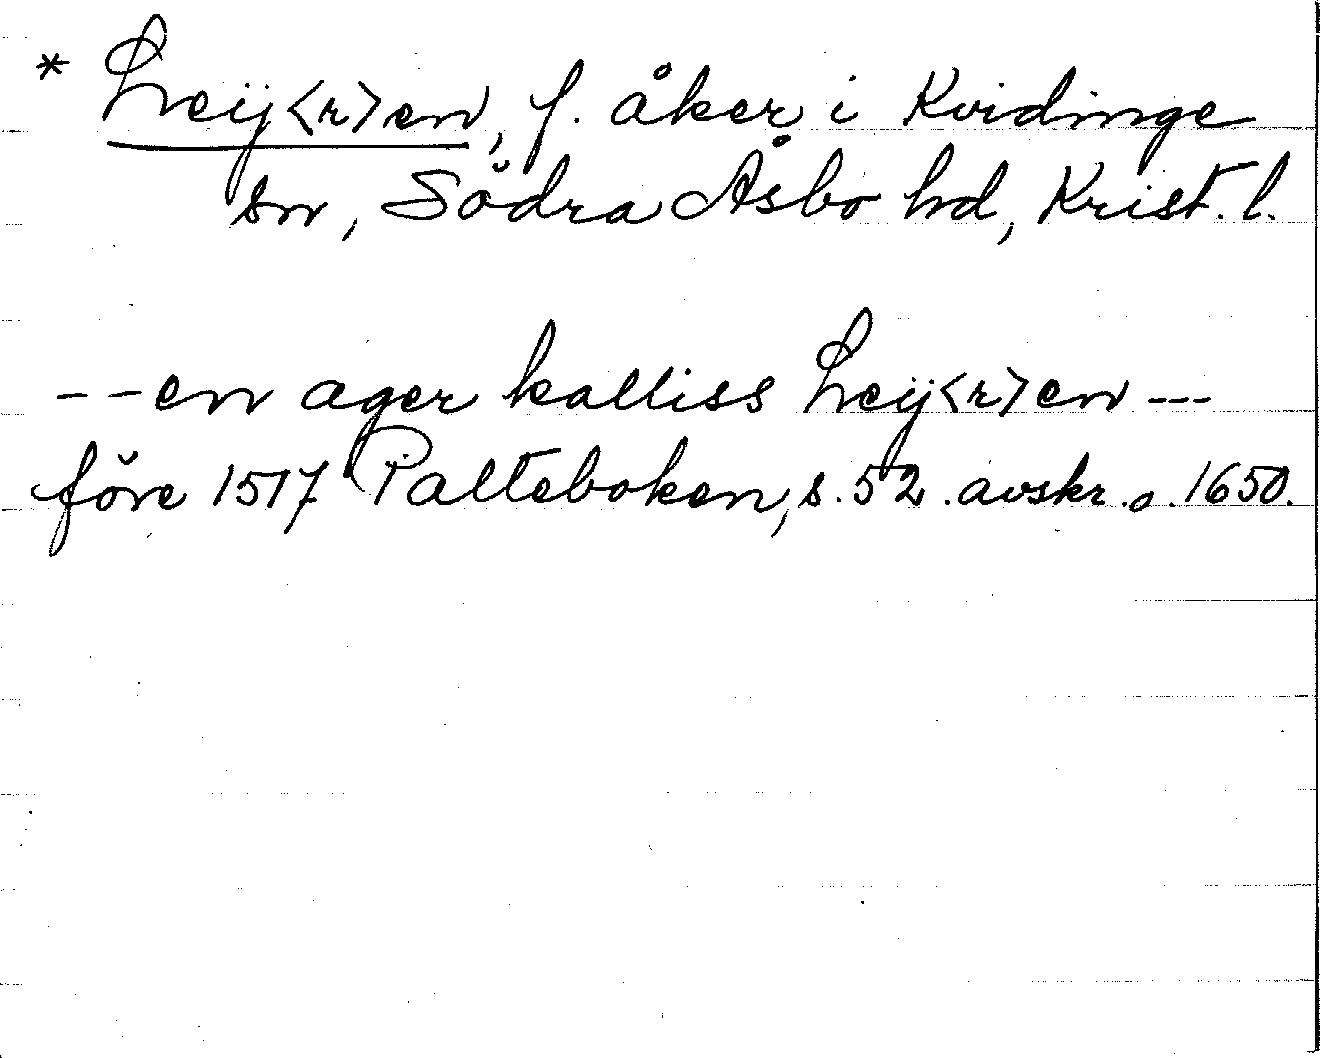 * Leij<r>en, f. åker i Kvidinge
sn, Södra Åsbo hd, Krist. l.
-- en ager kalliss Leij<r>en ---
före 1517 Palteboken, s. 52. avskr. o. 1650.